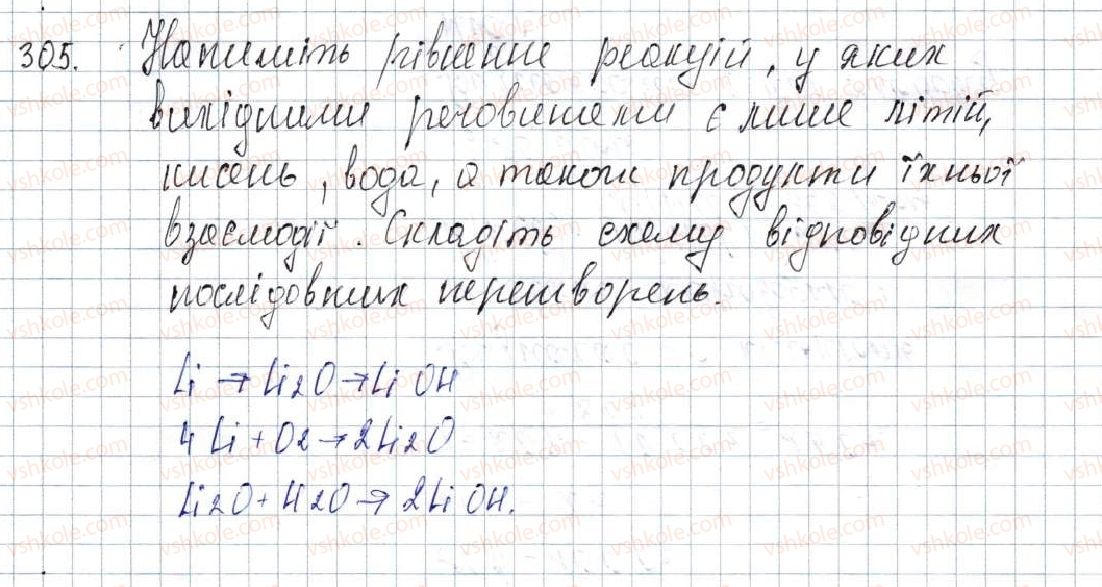 305. Напишіть рівняння реакцій, у яких
вихідними речовинами є лише літій,
кисень, вода, а також продукти їхньої
взаємодії. Складіть схему відповідних
послідовних перетворень.
Li → Li2O → LiOH
4Li + O2 → 2Li2O
Li2O + H2O → 2LiOH.